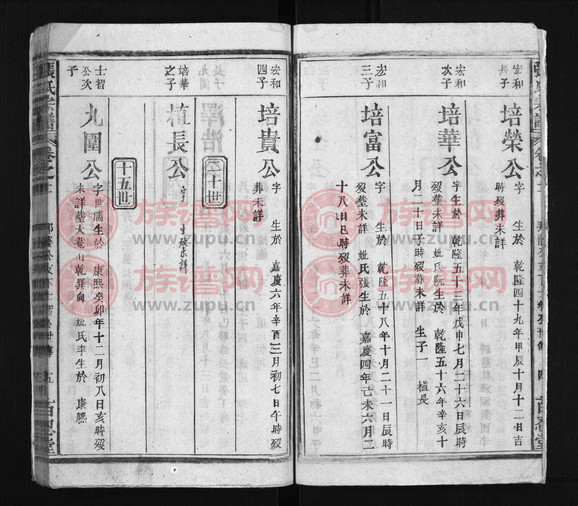 宏和
長子
培榮公
字 生於 乾隆四十九年甲辰十月十二日吉
時歿葬未詳
宏和
次子
培華公
字 生於 乾隆五十三年戊申七月二十六日辰時
歿葬未詳 妣氏阮生於 乾隆五十六年辛亥十
月二十日子時歿葬未詳 生子一 植長
宏和
三子
培富公
字 生於 乾隆五十八年十月二十一日辰時
歿葬未詳 妣氏張生於 嘉慶四年己未六月二
十八日巳時歿葬未詳
宏和
四子
培貴公
字 生於 嘉慶六年辛酉三月初七日午時歿
葬未詳
二十世
培華
之子
植長公
字 生歿未詳
十五世
士智
公次
子
九圍公
字世儒生於 康熙癸卯年十二月初八日亥時歿
未詳葬大巷山乾巽向 妣氏李生於 康熙
張氏宗譜
卷之
五
百忍堂
張氏宗譜
卷之
四
百忍堂
族谱网
www.zupu.cn
族谱网
www.zupu.cn
族谱网
www.zupu.cn
族谱网
www.zupu.cn